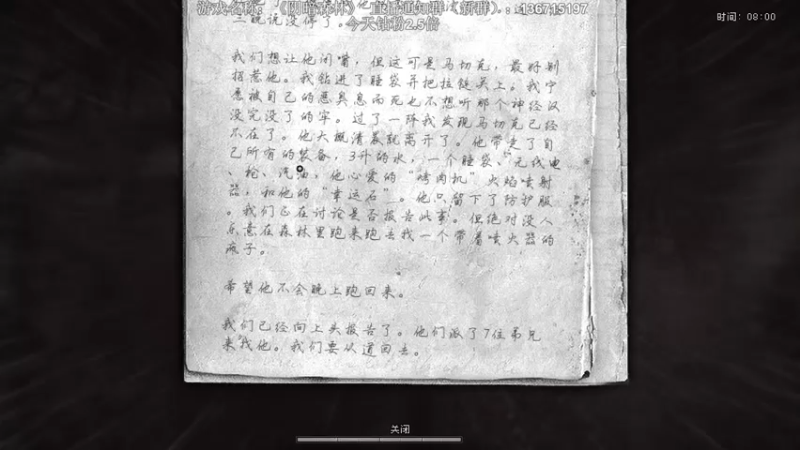 游戏名称：《阴暗森林》 直播通知群（新群）：136715197
今天钻粉2.5倍
时间：08:00
三晚说没停了。
我们想让他闭嘴，但这可是马切克，最好别
招惹他。我钻进了睡袋并把拉链关上。我宁
愿被自己的恶臭熏而死也不想听那个神经汉
没完没了的牢。过了一阵我发现马切克已经
不在了。他大概清晨就离开了。他带走了自
己所有的装备，3升的水，一个睡袋、无线电
、枪、汽油，他心爱的“烤肉机”火焰喷射
器，和他的“幸运石”。他只留下了防护服
。我们正在讨论是否报告此事。但绝对没人
乐意在森林里跑来跑去找一个带着喷火器的
疯子。
希望他不会晚上跑回来。
我们已经向上头报告了。他们派了7位弟兄
来找他。我们要从道回去。
关闭